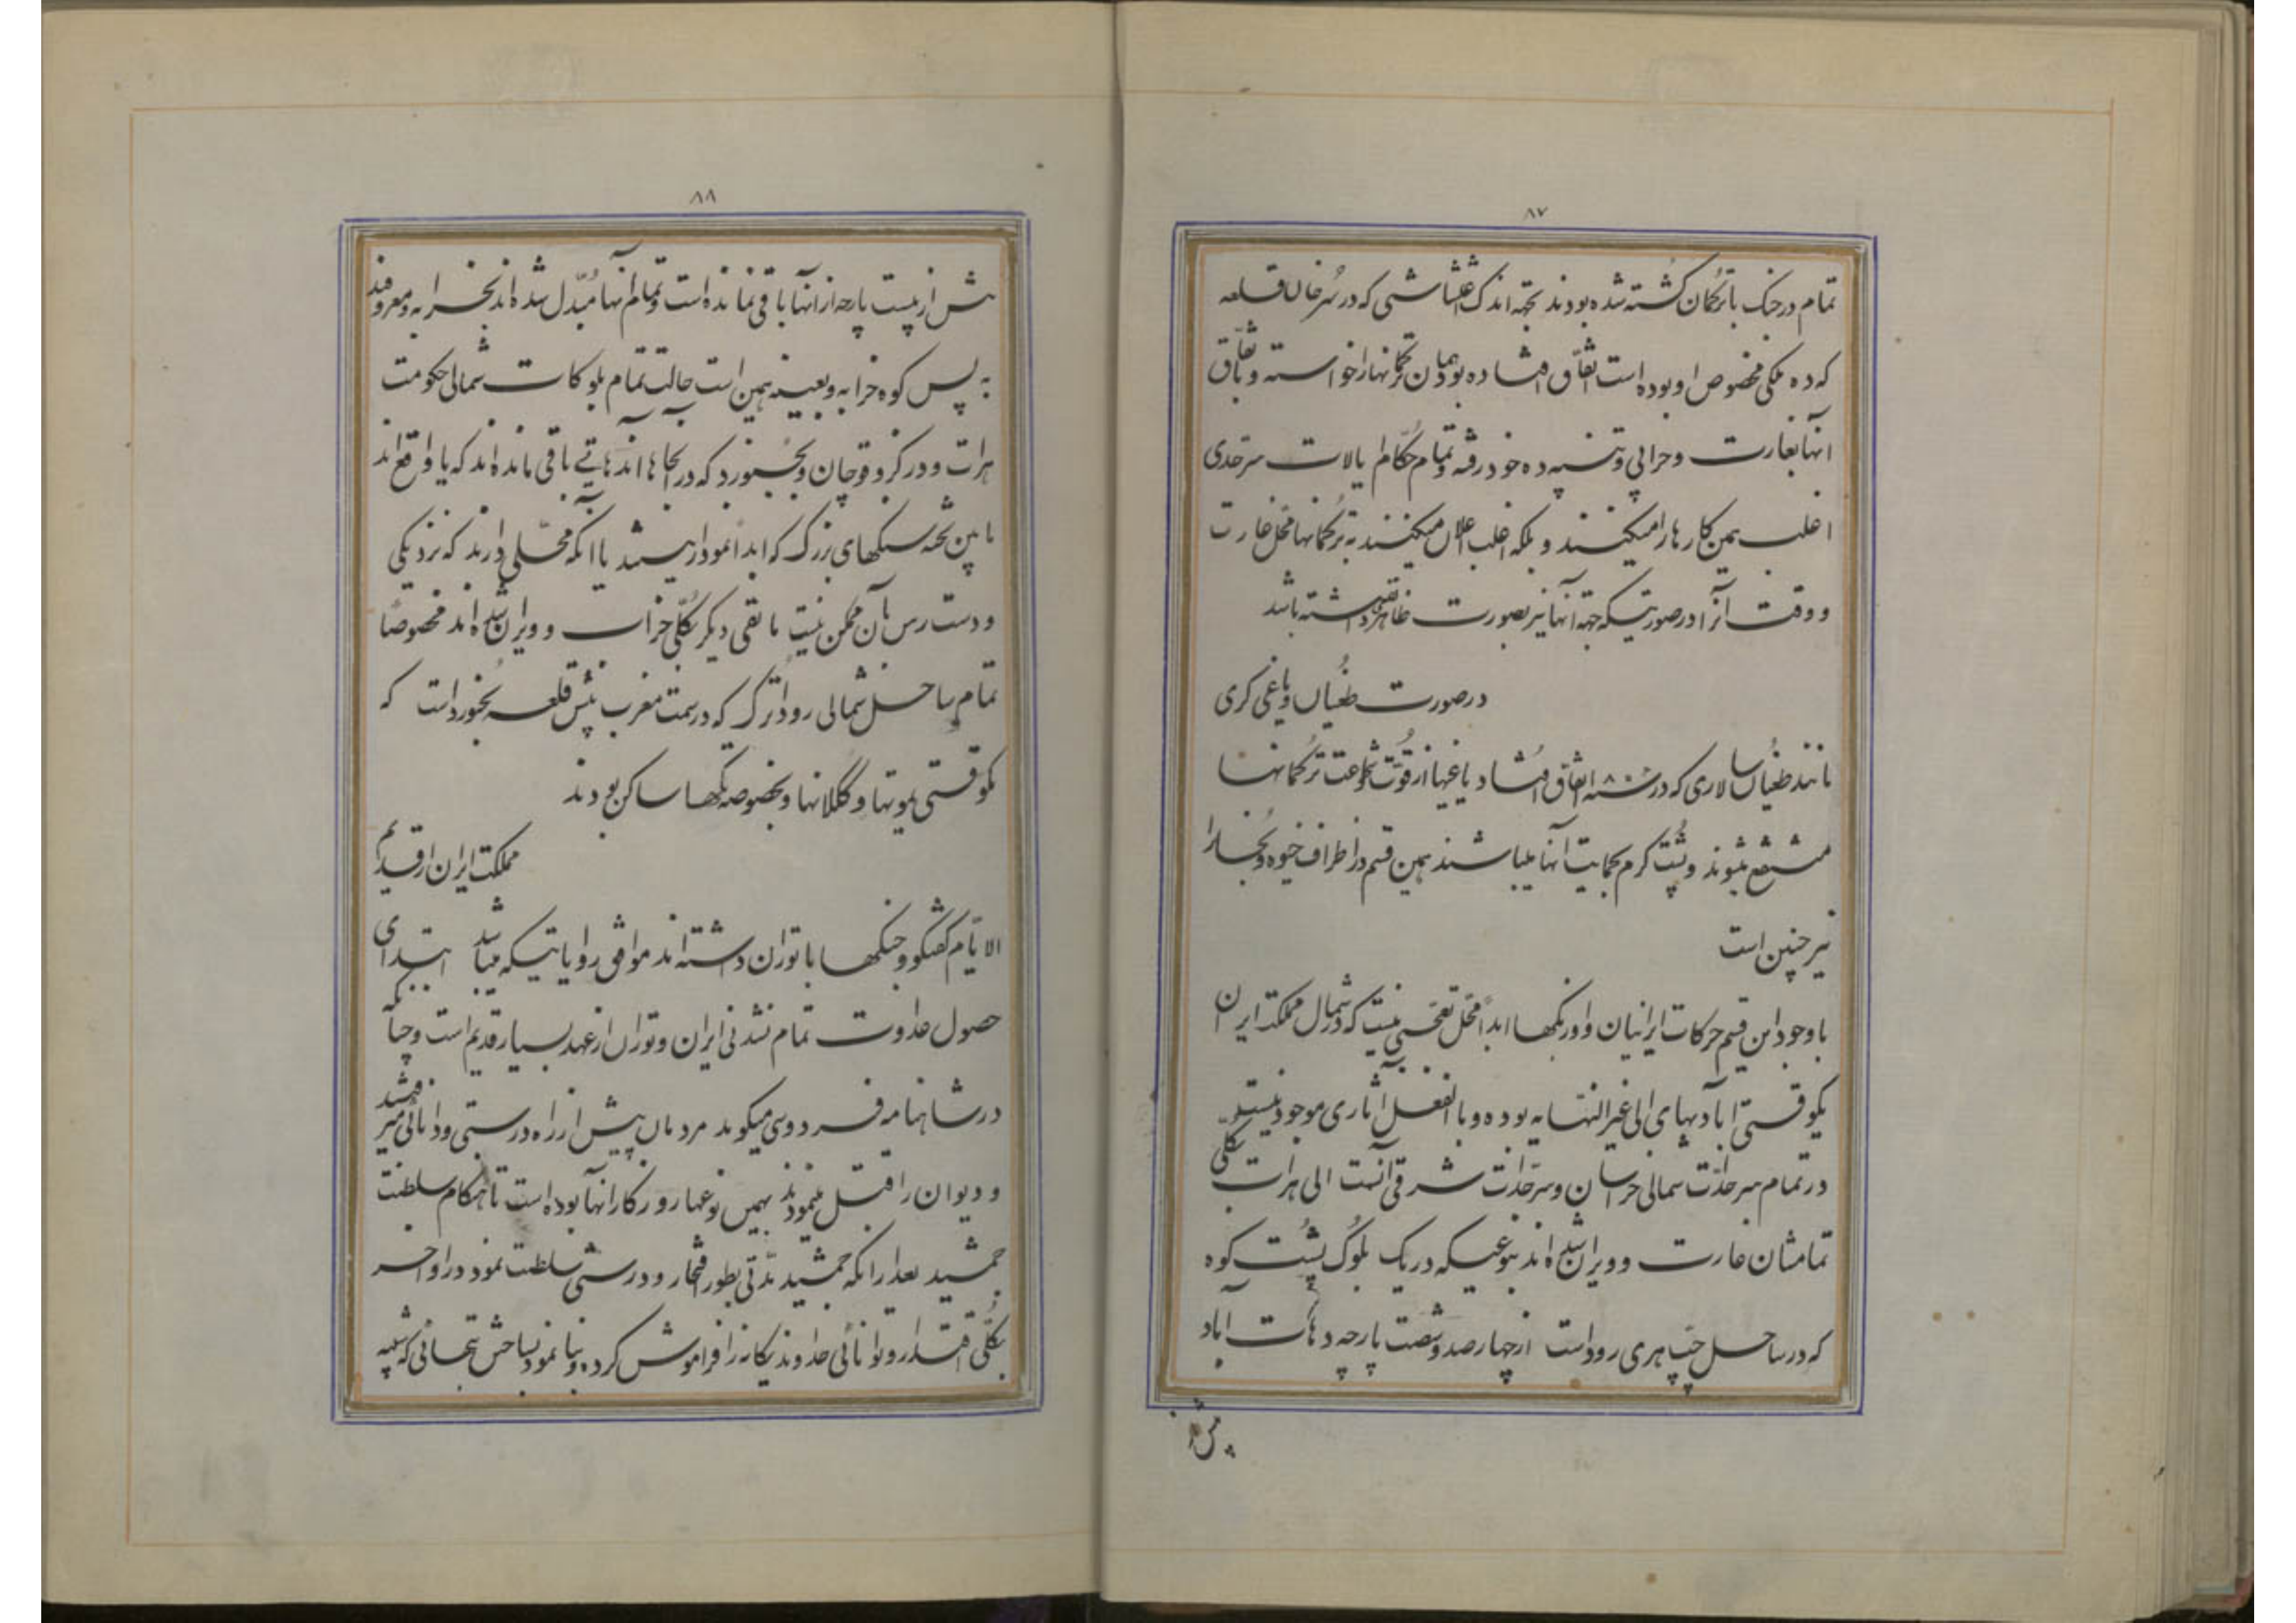 ۸۷
تمام در جنک با ترکمان کشته شده بودند بجهه اندک اغتشاشی که در سرخال قلعه
که ده ملکی مخصوص او بوده است اتفاق افتاده بود همان ترکمانها را خواسته و باتفاق
آنها بغارت و خرابی و تنبیه ده خود رفته و تمام حکام ایالات سرحدی
اغلب همین کارها را میکنند و بلکه اغلب اعلان میکنند به ترکمانها محل غارت
و وقت آنرا در صورتیکه جهة آنها نیز بصورت ظاهر داشته باشد
در صورت طغیان و یاغی کری
مانند طغیان سالاری که در سنه اتفاق افتاد یاغیها از قوت و شجاعت ترکمانها
منتفع میشوند و پشت کرم بحمایت آنها میباشند همین قسم در اطراف خیوه و بخارا
نیز چنین است
با وجود این قسم حرکات ایرانیان و اوزبکها ابداً محل تعجبی نیست که در شمال مملکت ایران
یکوقتی آبادیهای الی غیر النهایه بوده و بالفعل آثاری موجود نیست
در تمام سرحدات شمالی خراسان و سرحدات شرقی آنست الی هرات بکلی
تمامشان غارت و ویران شده اند بنوعیکه در یک بلوک پشت کوه
که در ساحل چپ هری رود است از چهار صد و شصت پارچه دهات آباد
۸۸
بیش از بیست پارچه از آنها باقی نمانده است و تمام آنها مبدل شده اند بخرابه و معروفند
به پس کوه خرابه و بعینه همین است حالت تمام بلوکات شمالی حکومت
هرات و درکز و قوچان و بجنورد که در آنجاها دهاتی باقی مانده اند که یا واقع اند
مابین تخته سنکهای بزرک که ابداً نمودار نیستند یا آنکه محلی دارند که نزدیکی
و دست رس بآن ممکن نیست مابقی دیکر بکلی خراب و ویران شده اند مخصوصاً
تمام ساحل شمالی رود اترک که در سمت مغرب پیش قلعه بجنورد است که
یکوقتی یموتها و کوکلانها و بخصوصه تکه‌ها ساکن بودند
مملکت ایران از قدیم
الایام کفتکو و جنکها با توران داشته اند موافق روایاتیکه میباشد ابتدای
حصول عداوت تمام نشدنی ایران و توران از عهد بسیار قدیم است و چنانکه
در شاهنامه فردوسی میکوید مردمان پیش از راه درستی و دانائی میرفتند
و دیوان را قتل مینمودند بهمین نوعها روزکار آنها بوده است تا هنکام سلطنت
جمشید بعد از آنکه جمشید مدتی بطور افتخار و درستی سلطنت نمود در اواخر
بکلی اقتدار و توانائی خداوند یکانه را فراموش کرده و بنا نمود بساختن بتهائی که شبیه